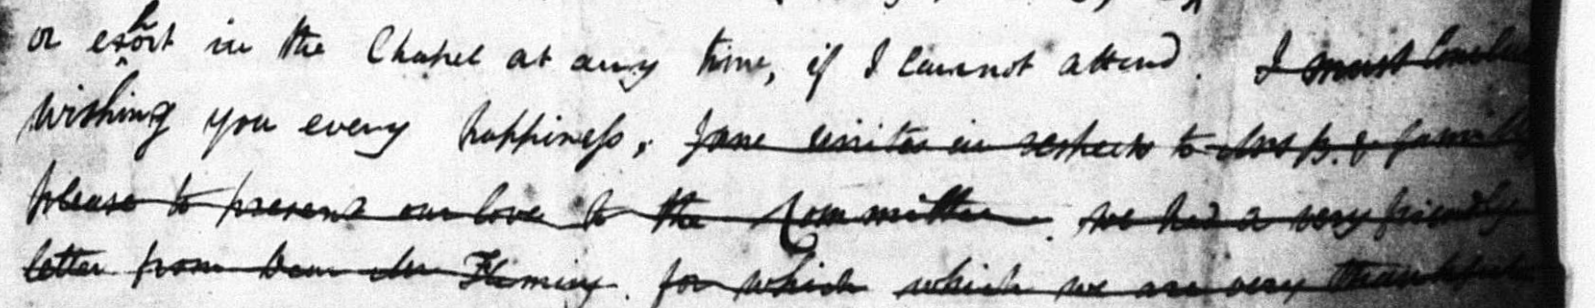 or exhort in the Chapel at any time, if I cannot attend. I must Conclu
wishing you every happiness, Jane unites in respects to Mrs B. & family
please to present our love to the Committee. we had a very friendly
letter from dear Mr Fleming. for which which we are very thankful